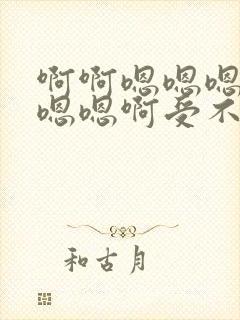 啊啊嗯嗯嗯
嗯嗯啊受不
和古月